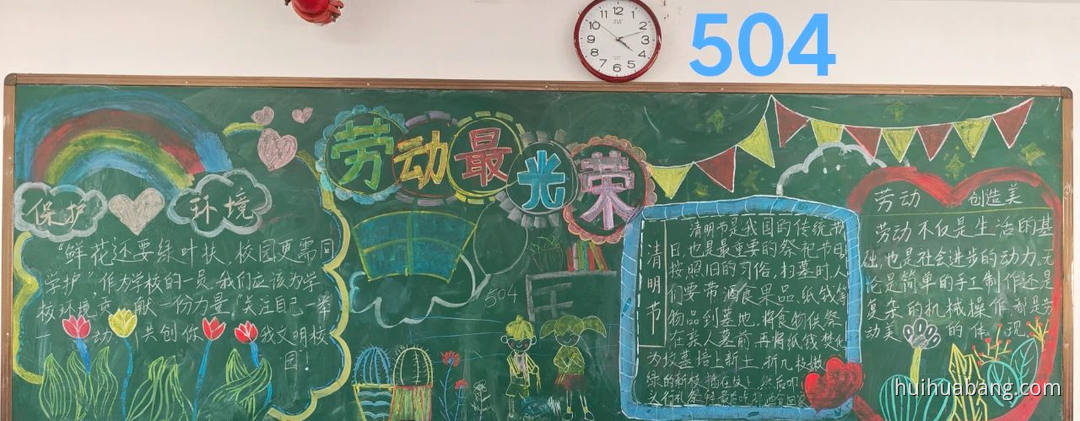 504
劳动最光荣
保护 环境
"鲜花还要绿叶扶,校园更需同
学护"作为学校的一员,我们应该为学
校环境贡献一份力量。关注自己一举
一动 共创你 我文明校
园!
504
清明节
清明节是我国的传统节
日,也是最重要的祭祀节日
按照旧的习俗,扫墓时人
们要带酒食果品.纸钱等
物品到墓地.将食物供祭
在亲人墓前.再将纸钱焚化
为坟墓培上新土.折几枝嫩
绿的新枝插在坟上.然后叩
头行礼
劳动 创造美
劳动不仅是生活的基
础,也是社会进步的动力.无
论是简单的手工制作还是
复杂的机械操作,都是劳
动美 的体现
huihuabang.com